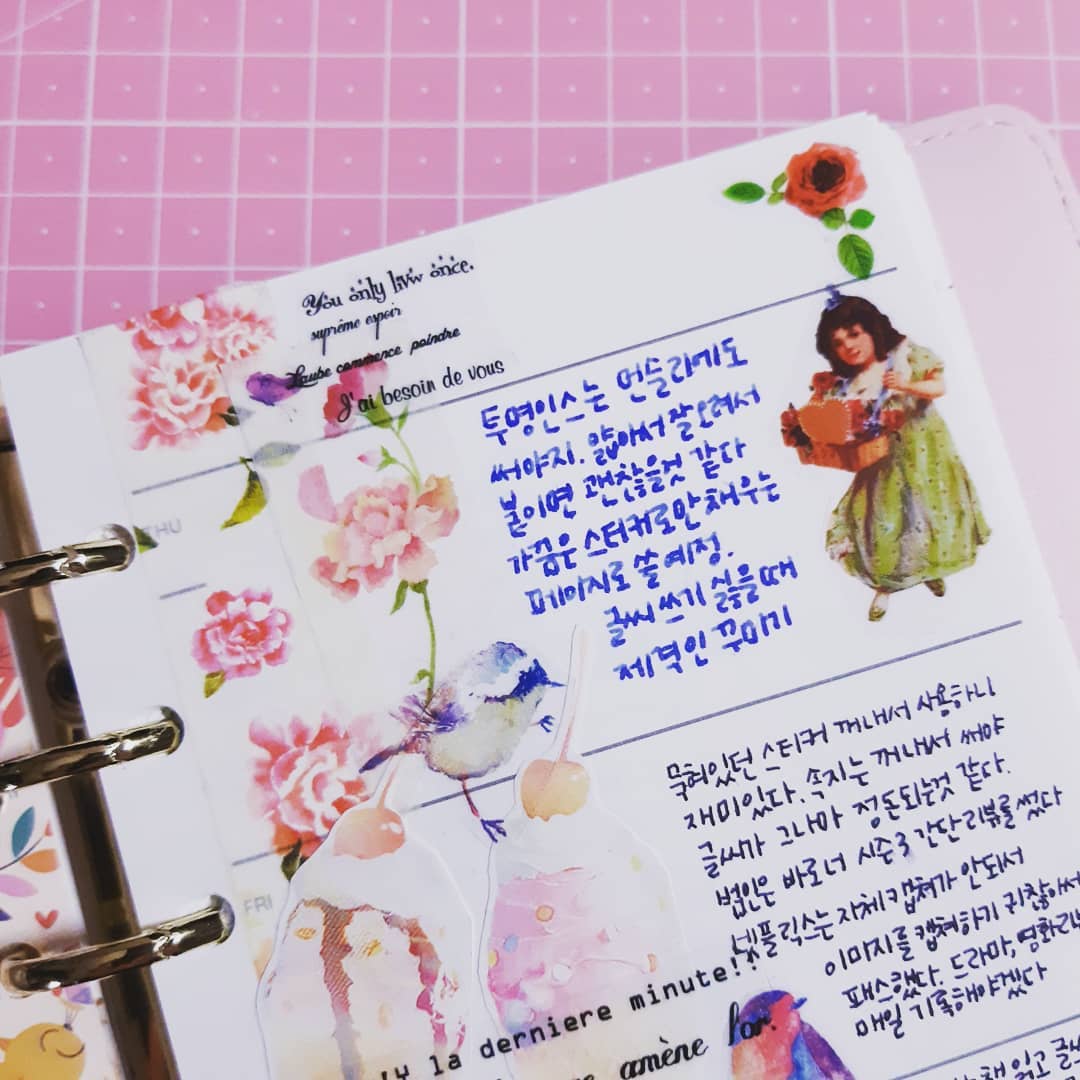 You only livw once.
suprême espoir
L'aube commence poindre
J'ai besoin de vous
투명인스는 먼슬리에도
써야지. 얇아서 잘오려서
붙이면 괜찮을것 같다
가끔은 스티커로만 채우는
페이지로 쓸 예정.
글씨 쓰기 싫을때
제격인 꾸미기
THU
묵혀있던 스티커 꺼내서 사용하니
재미있다. 속지는 꺼내서 써야
글씨가 그나마 정돈되는것 같다.
범인은 바로너 시즌3 간단리뷰를 썼다
넷플릭스는 자체캡쳐가 안되서
이미지를 캡쳐하기 귀찮아서
패스했다. 드라마, 영화리뷰
매일 기록해야겠다
FRI
la derniere minute!
amène
읽고